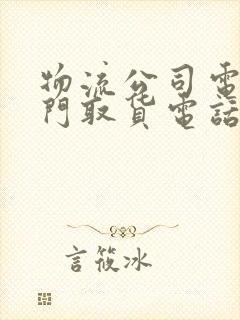 物流公司電
門取貨電話
言筱冰